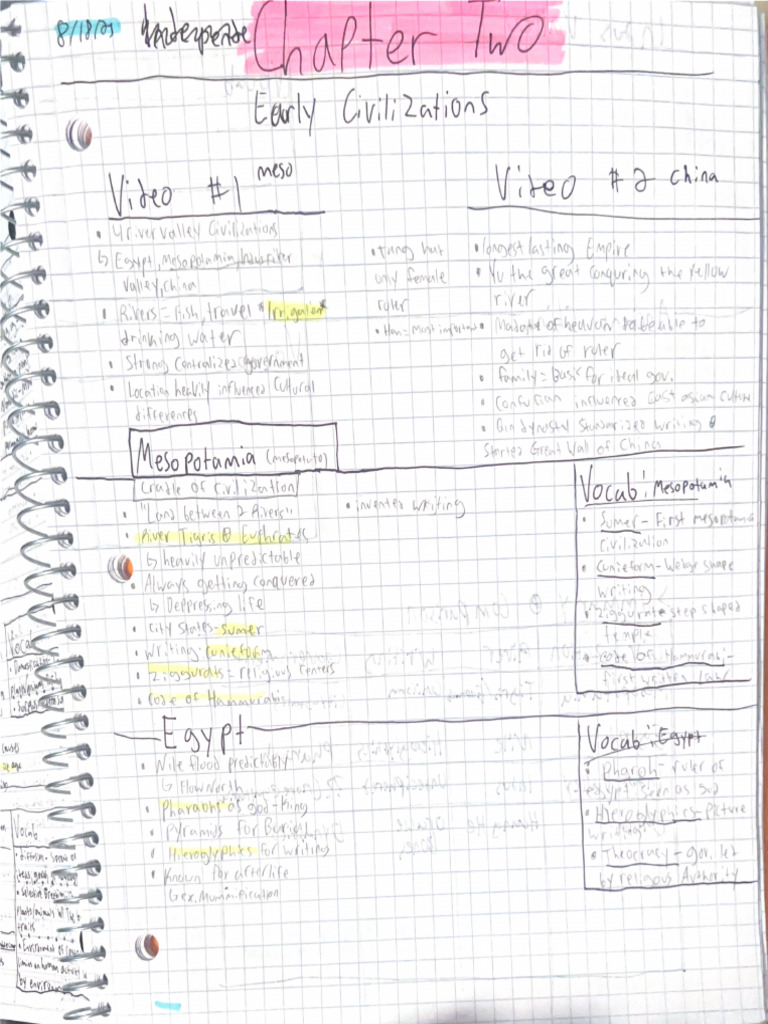 8/18/25
Chapter Two
Early Civilizations
Video #1 meso
• 4 river valley Civilizations
↳ Egypt, Mesopotamia,
valley, china
• Rivers = Fish, travel *Irrigation*
drinking water
• Strong Centralized government
• Location heavily influenced Cultural
differences
Video #2 China
• longest lasting Empire
• Yu the great conquring the Yellow
river
• of heaven to
get rid of ruler
• family = Basic for ideal gov.
• Confucian influenced East asian culture
• Qin dynasty writing &
Started Great Wall of China
only female
ruler
• Han = Most important
Mesopotamia
Cradle of Civilization
• "Land between 2 Rivers"
• River Tigris & Euphrates
↳ heavily unpredictable
• Always getting conquered
↳ Deppressing life
• City States - Sumer
• Writing Cunieform
• Ziggurats = religious centers
• Code of Hammurabi
• invented writing
Vocab: Mesopotamia
• Sumer - First mesopotamia
Civilization
• Cunieform - Wedge shape
writing
• step shaped
temple
• Code of Hammurabi -
first written law
Egypt
• Nile flood predictibly
• Pharaohs as god-king
• Pyramids for Burial
• for writing
• Known for afterlife
↳ ex. Mummification
Vocab: Egypt
• Pharoh - ruler of
egypt seen as god
• - Picture
• Theocracy - gov. led
by religous Authority
Vocab